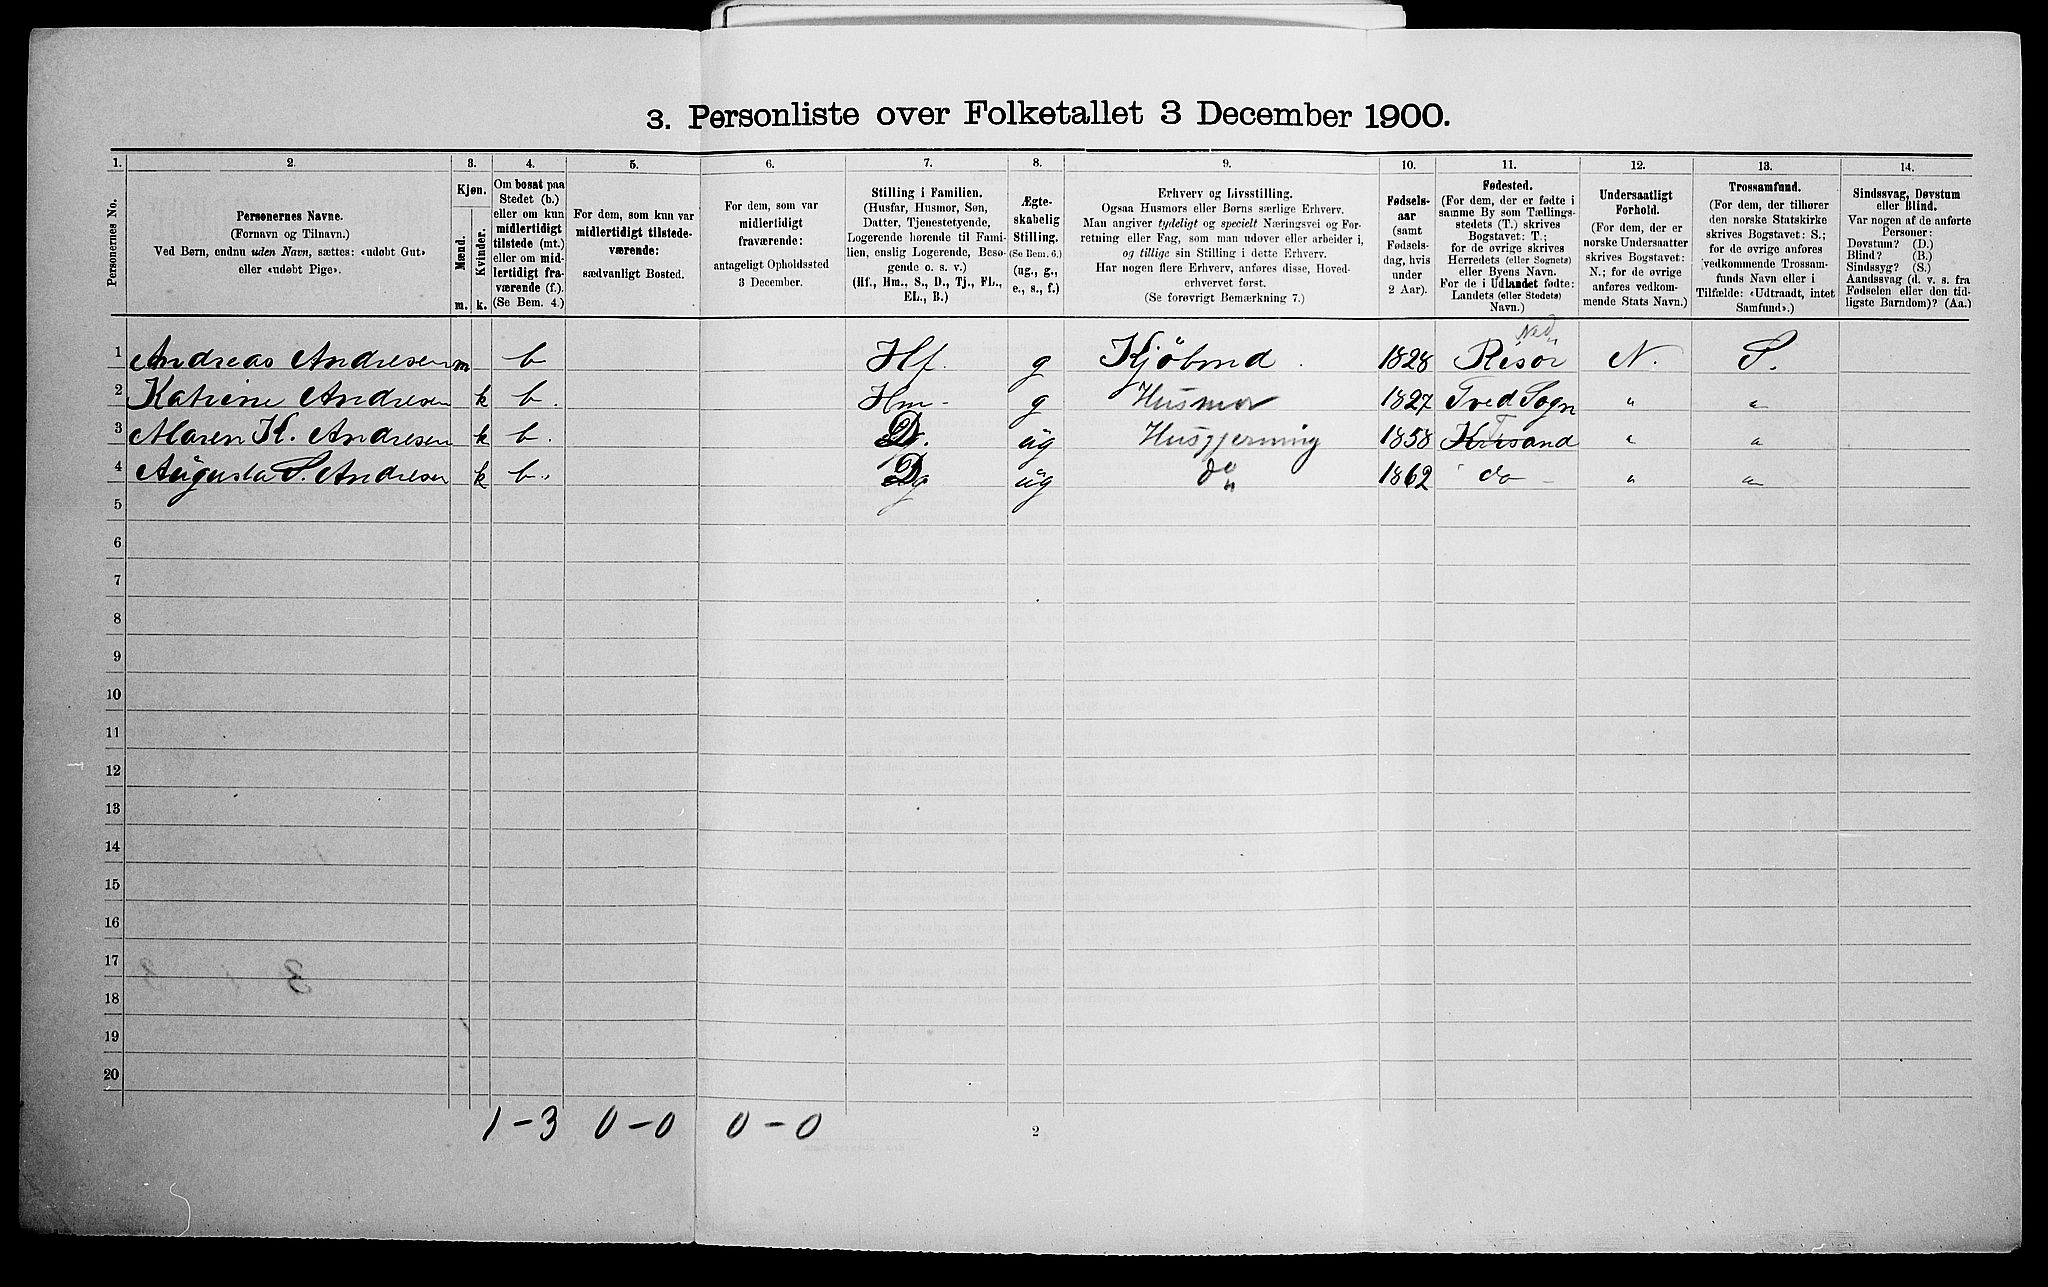 3. Personliste over Folketallet 3 December 1900.
1. 2. 3. 4. 5. 6. 7. 8. 9. 10. 11. 12. 13. 14.
Personernes No.
Personernes Navne.
(Fornavn og Tilnavn.)
Ved Børn, endnu uden Navn, sættes: «udøbt Gut»
eller «udøbt Pige».
Kjøn.
Mænd.
Kvinder.
m. k.
Om bosat paa
Stedet (b.)
eller om kun
midlertidigt
tilstede (mt.)
eller om mid-
lertidigt fra-
værende (f.).
(Se Bem. 4.)
For dem, som kun var
midlertidigt tilstede-
værende:
sædvanligt Bosted.
For dem, som var
midlertidigt
fraværende:
antageligt Opholdssted
3 December.
Stilling i Familien.
(Husfar, Husmor, Søn,
Datter, Tjenestetyende,
Logerende hørende til Fami-
lien, enslig Logerende, Besø-
gende o. s. v.)
(Hf., Hm., S., D., Tj., FL.,
EL., B.)
Ægte-
skabelig
Stilling.
(Se Bem. 6.)
(ug., g.,
e., s., f.)
Erhverv og Livsstilling.
Ogsaa Husmors eller Børns særlige Erhverv.
Man angiver tydeligt og specielt Næringsvei og For-
retning eller Fag, som man udøver eller arbeider i,
og tillige sin Stilling i dette Erhverv.
Har nogen flere Erhverv, anføres disse, Hoved-
erhvervet først.
(Se forøvrigt Bemærkning 7.)
Fødsels-
aar
(samt
Fødsels-
dag, hvis
under
2 Aar).
Fødested.
(For dem, der er fødte i
samme By som Tællings-
stedets (T.) skrives
Bogstavet: T.;
for de øvrige skrives
Herredets (eller Sognets)
eller Byens Navn.
For de i Udlandet fødte:
Landets (eller Stedets)
Navn.)
Undersaatligt
Forhold.
(For dem, der er
norske Undersaatter
skrives Bogstavet:
N.; for de øvrige
anføres vedkom-
mende Stats Navn.)
Trossamfund.
(For dem, der tilhører
den norske Statskirke
skrives Bogstavet: S.;
for de øvrige anføres
vedkommende Trossam-
funds Navn eller i
Tilfælde: «Udtraadt, intet
Samfund».)
Sindssvag, Døvstum
eller Blind.
Var nogen af de anførte
Personer:
Døvstum? (D.)
Blind? (B.)
Sindssyg? (S.)
Aandssvag (d. v. s. fra
Fødselen eller den tid-
ligste Barndom)? (Aa.)
Ned.
1 Andreas Andresen m b Hf. g Kjöbmd. 1828 Risör N. S.
2 Katrine Andresen k b. Hm- g Husmor 1827 Tved Sogn " "
T
3 Maren K. Andresen k b. D. üg Husgjerning 1858 Krisand " "
4 Augusta S. Andresen k b. D üg do 1862 do " "
5
6
7
8
9
10
11
12
13
14
15
16
17
18
19
20
1-3 0-0 0-0
2